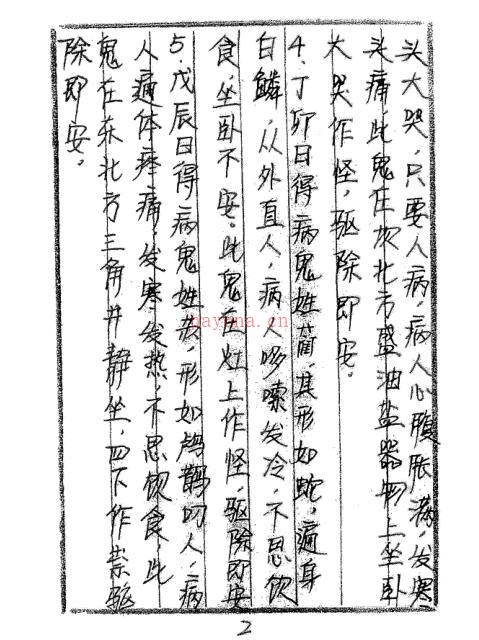 头大哭，只要人病，病人心腹胀满，发寒
头痛，此鬼在坎北方盛油盐器物上坐卧
大哭作怪，驱除即安。
4．丁卯日得病鬼姓蔺，其形如蛇，遍身
白鳞，从外直人，病人哆嗦发冷，不思饮
食，坐卧不安。此鬼在灶上作怪，驱除即安
5．戊辰日得病鬼姓，形如鸬鹚叼人，病
人遍体疼痛，发寒发热，不思饮食，此
鬼在东北方三角井静坐，四下作祟驱
除即安。
nayona.cn
2